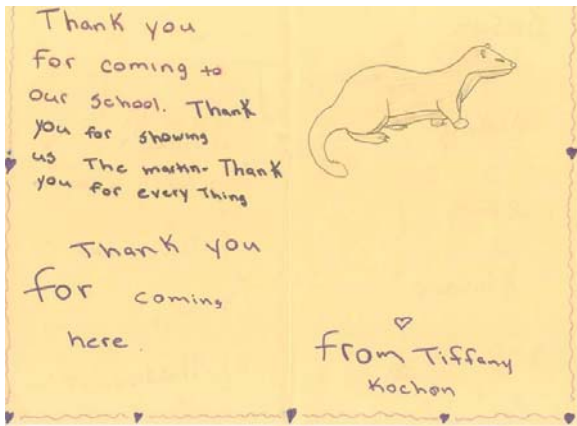 Thank you
for coming to
our school. Thank
you for showing
us The martin- Thank
you for every Thing
Thank you
for coming
here.
from Tiffany
Kochon